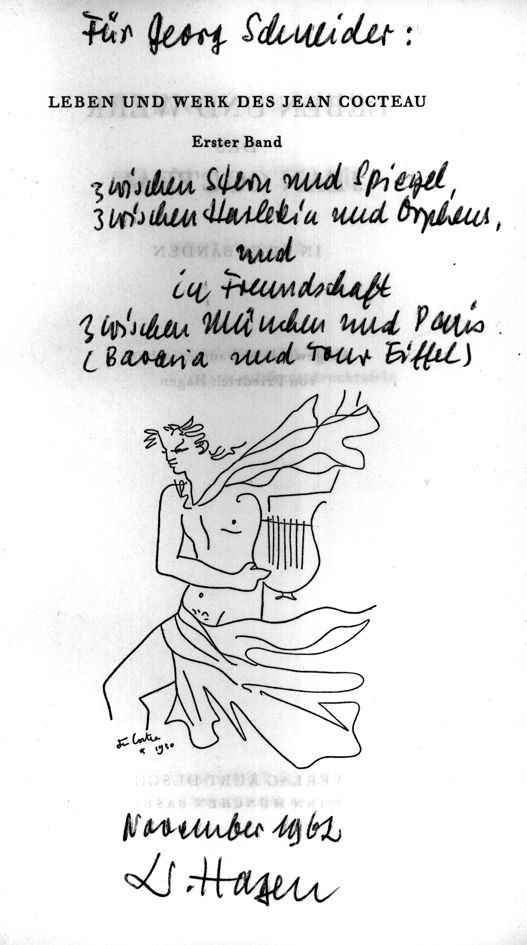 Für Georg Schneider:
LEBEN UND WERK DES JEAN COCTEAU
Erster Band
zwischen Stern und Spiegel,
zwischen Harlekin und Orpheus,
und
in Freundschaft
zwischen München und Paris
(Bavaria und Tour Eiffel)
Jean Cocteau
* 1930
November 1962
Hagen